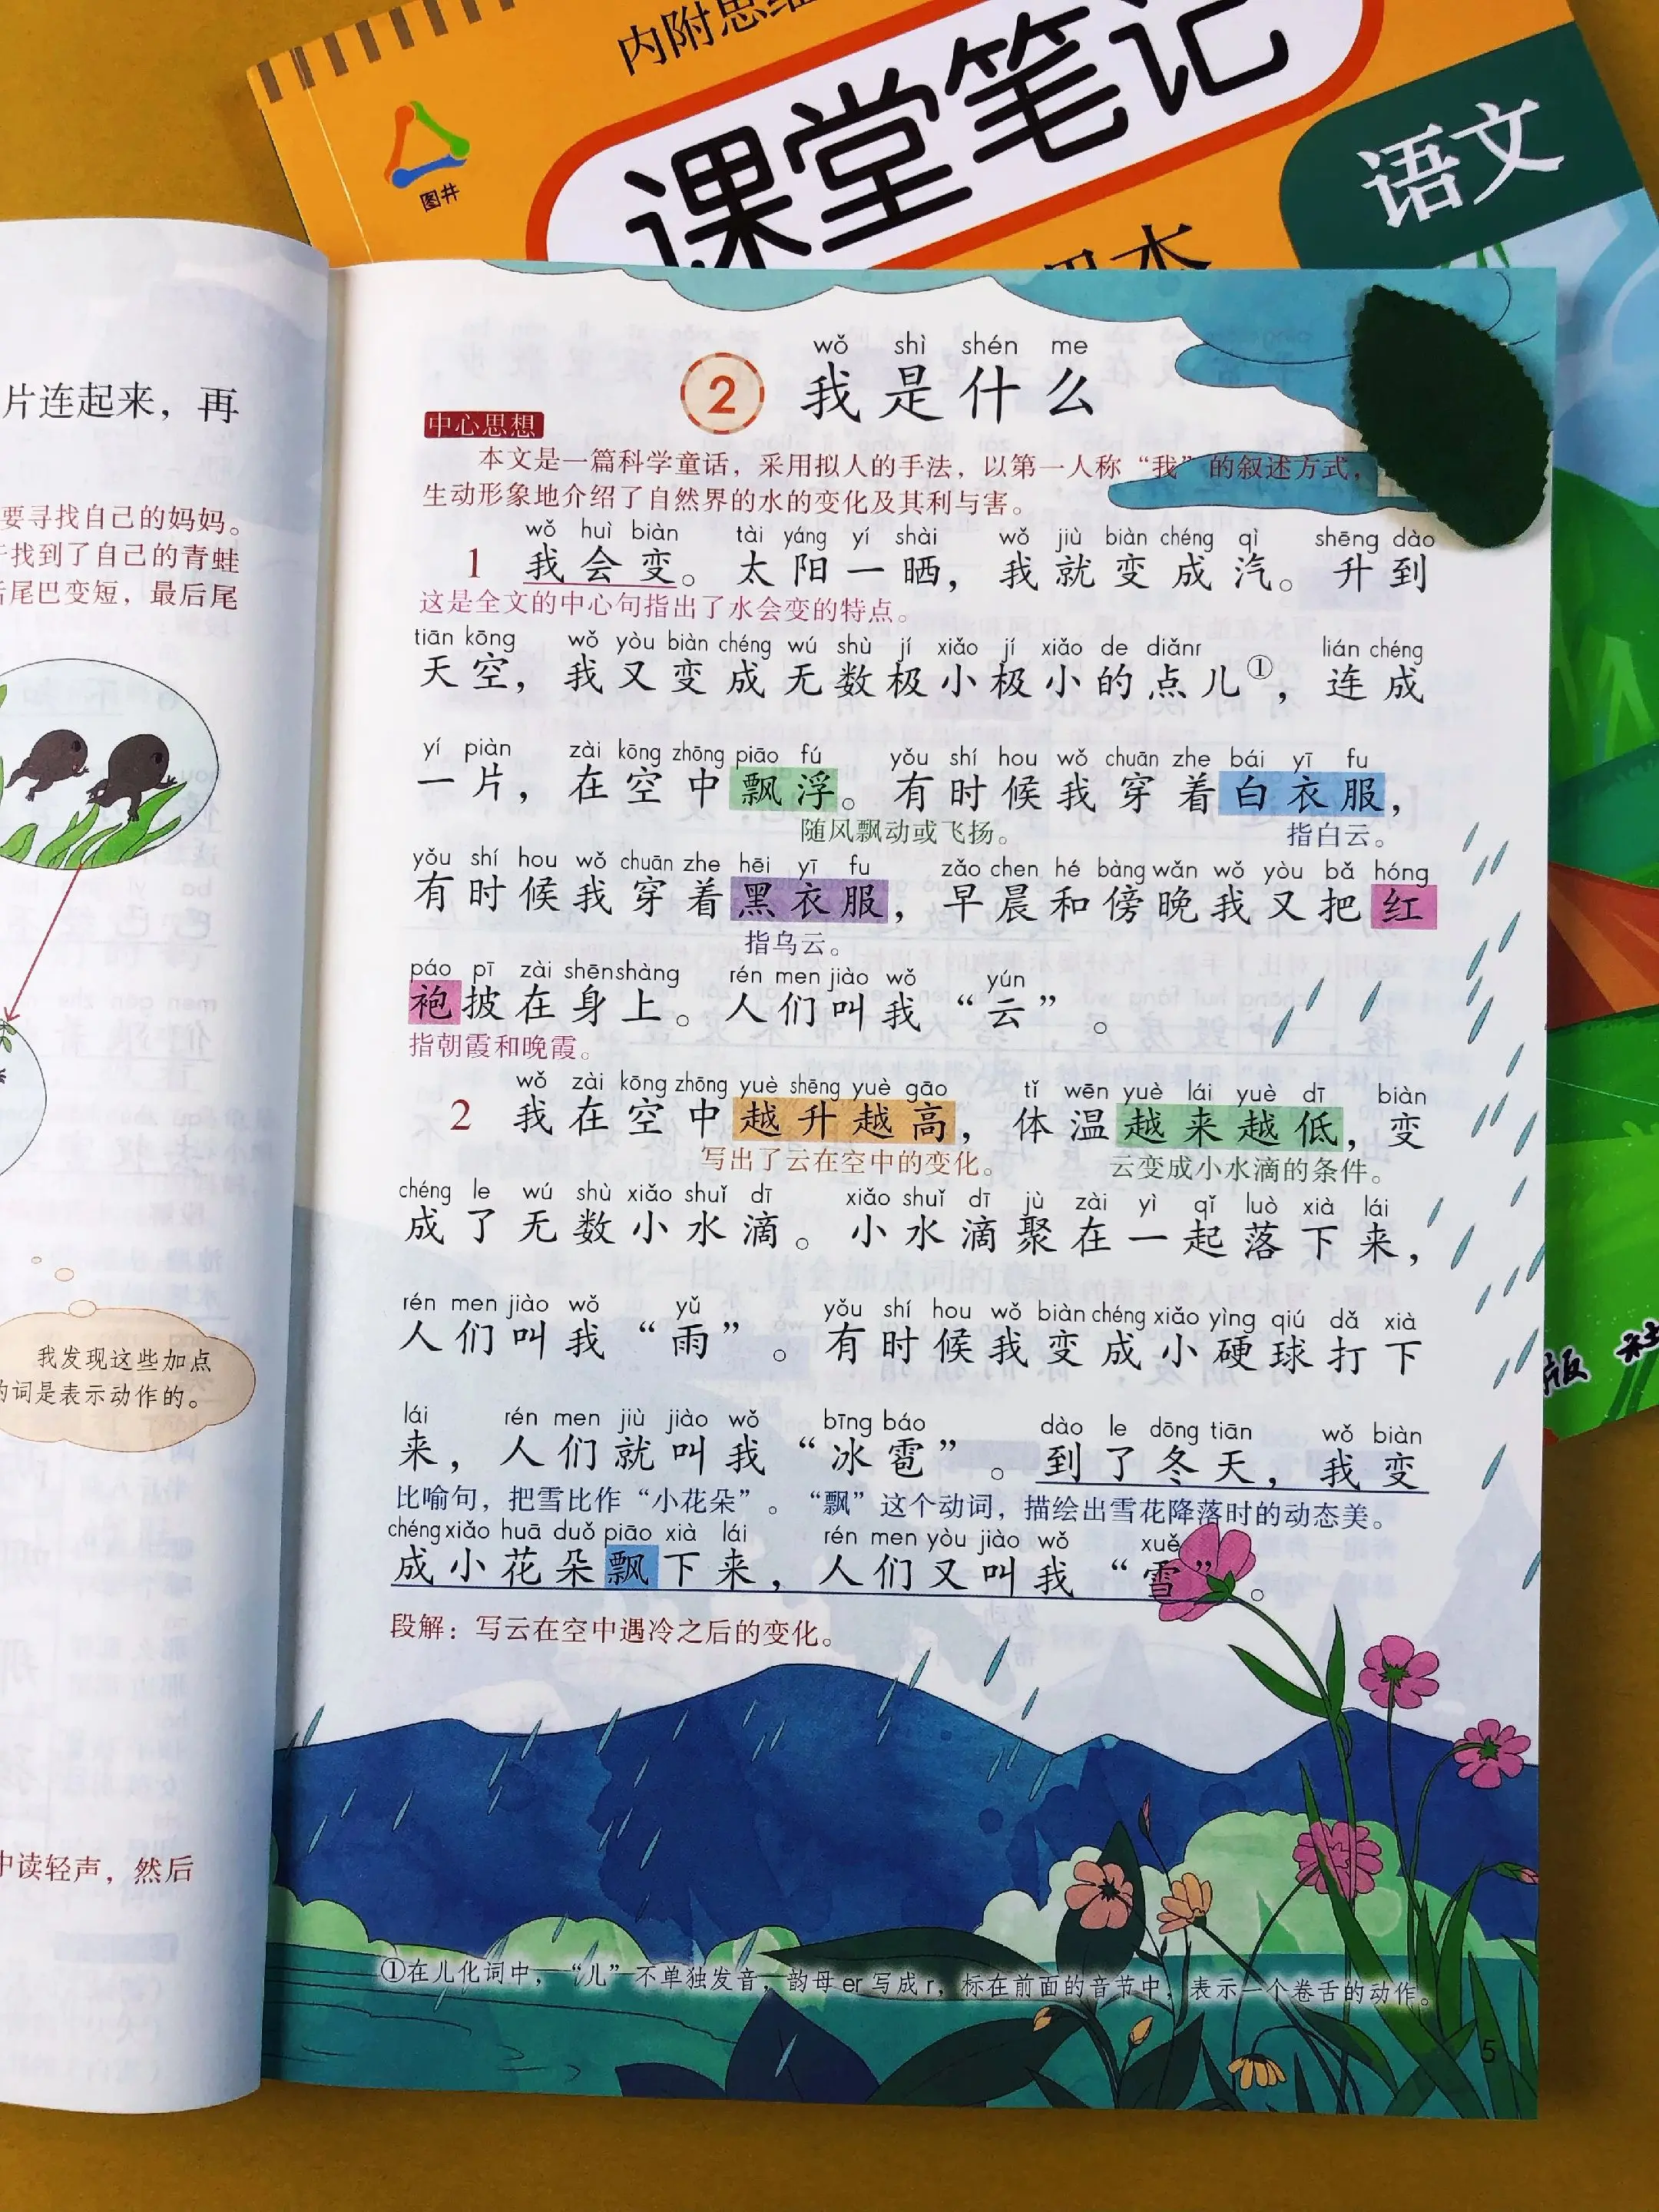 内附思维
课堂笔记
语文
图井
课本
片连起来，再
要寻找自己的妈妈。
找到了自己的青蛙
尾巴变短，最后尾
我发现这些加点
的词是表示动作的。
中读轻声，然后
wǒ shì shén me
2 我是什么
中心思想
本文是一篇科学童话，采用拟人的手法，以第一人称“我”的叙述方式，
生动形象地介绍了自然界的水的变化及其利与害。
wǒ huì biàn tài yáng yí shài wǒ jiù biàn chéng qì shēng dào
1 我会变。太阳一晒，我就变成汽。升到
这是全文的中心句指出了水会变的特点。
tiān kōng wǒ yòu biàn chéng wú shù jí xiǎo jí xiǎo de diǎnr lián chéng
天空，我又变成无数极小极小的点儿①，连成
yí piàn zài kōng zhōng piāo fú yǒu shí hou wǒ chuān zhe bái yī fu
一片，在空中飘浮。有时候我穿着白衣服，
随风飘动或飞扬。 指白云。
yǒu shí hou wǒ chuān zhe hēi yī fu zǎo chen hé bàng wǎn wǒ yòu bǎ hóng
有时候我穿着黑衣服，早晨和傍晚我又把红
指乌云。
páo pī zài shēn shàng rén men jiào wǒ yún
袍披在身上。人们叫我“云”。
指朝霞和晚霞。
wǒ zài kōng zhōng yuè shēng yuè gāo tǐ wēn yuè lái yuè dī biàn
2 我在空中越升越高，体温越来越低，变
写出了云在空中的变化。 云变成小水滴的条件。
chéng le wú shù xiǎo shuǐ dī xiǎo shuǐ dī jù zài yì qǐ luò xià lái
成了无数小水滴。小水滴聚在一起落下来，
rén men jiào wǒ yǔ yǒu shí hou wǒ biàn chéng xiǎo yìng qiú dǎ xià
人们叫我“雨”。有时候我变成小硬球打下
lái rén men jiù jiào wǒ bīng báo dào le dōng tiān wǒ biàn
来，人们就叫我“冰雹”。到了冬天，我变
比喻句，把雪比作“小花朵”。“飘”这个动词，描绘出雪花降落时的动态美。
chéng xiǎo huā duǒ piāo xià lái rén men yòu jiào wǒ xuě
成小花朵飘下来，人们又叫我“雪”。
段解：写云在空中遇冷之后的变化。
①在儿化词中，“儿”不单独发音，韵母er写成r，标在前面的音节中，表示一个卷舌的动作。
5
版社